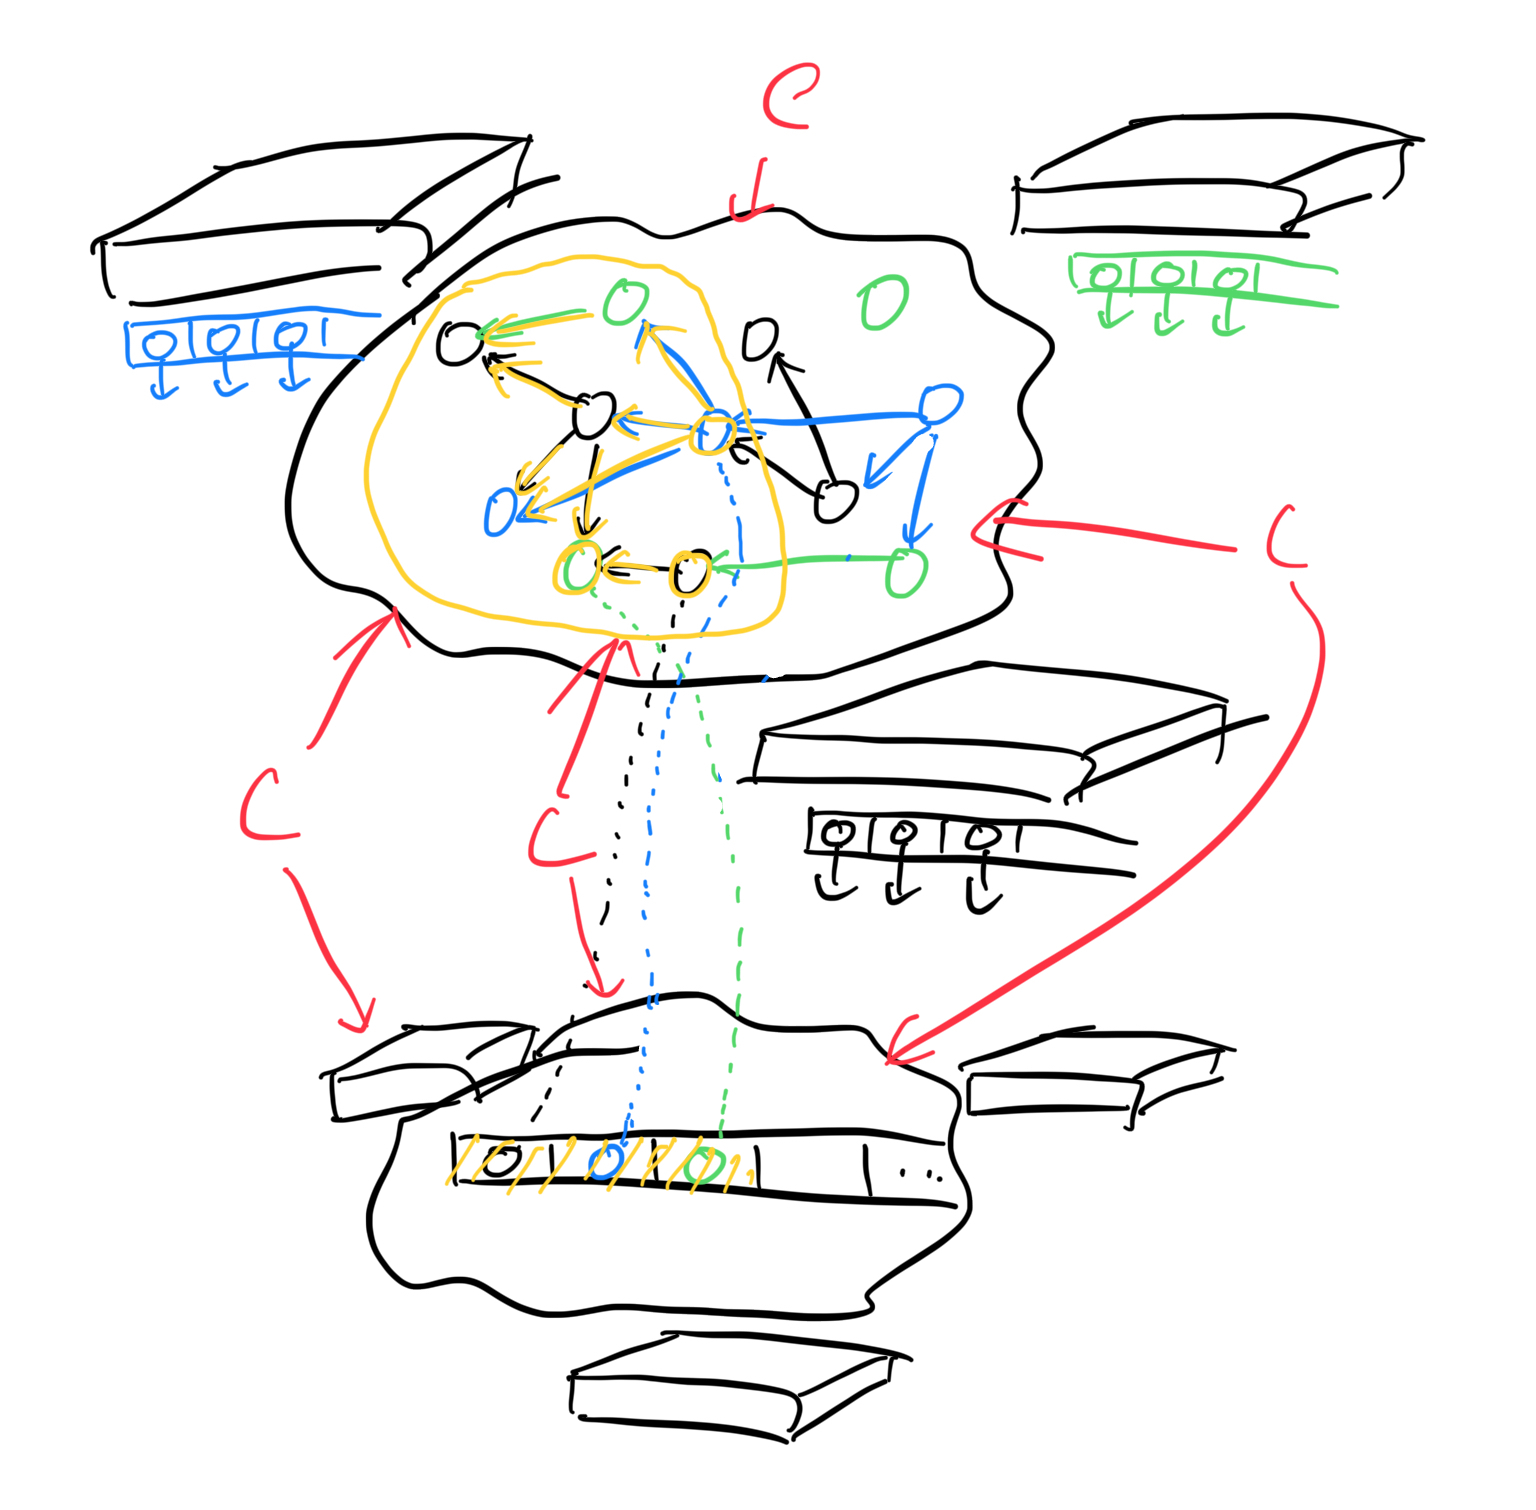 C
C
C
C
...